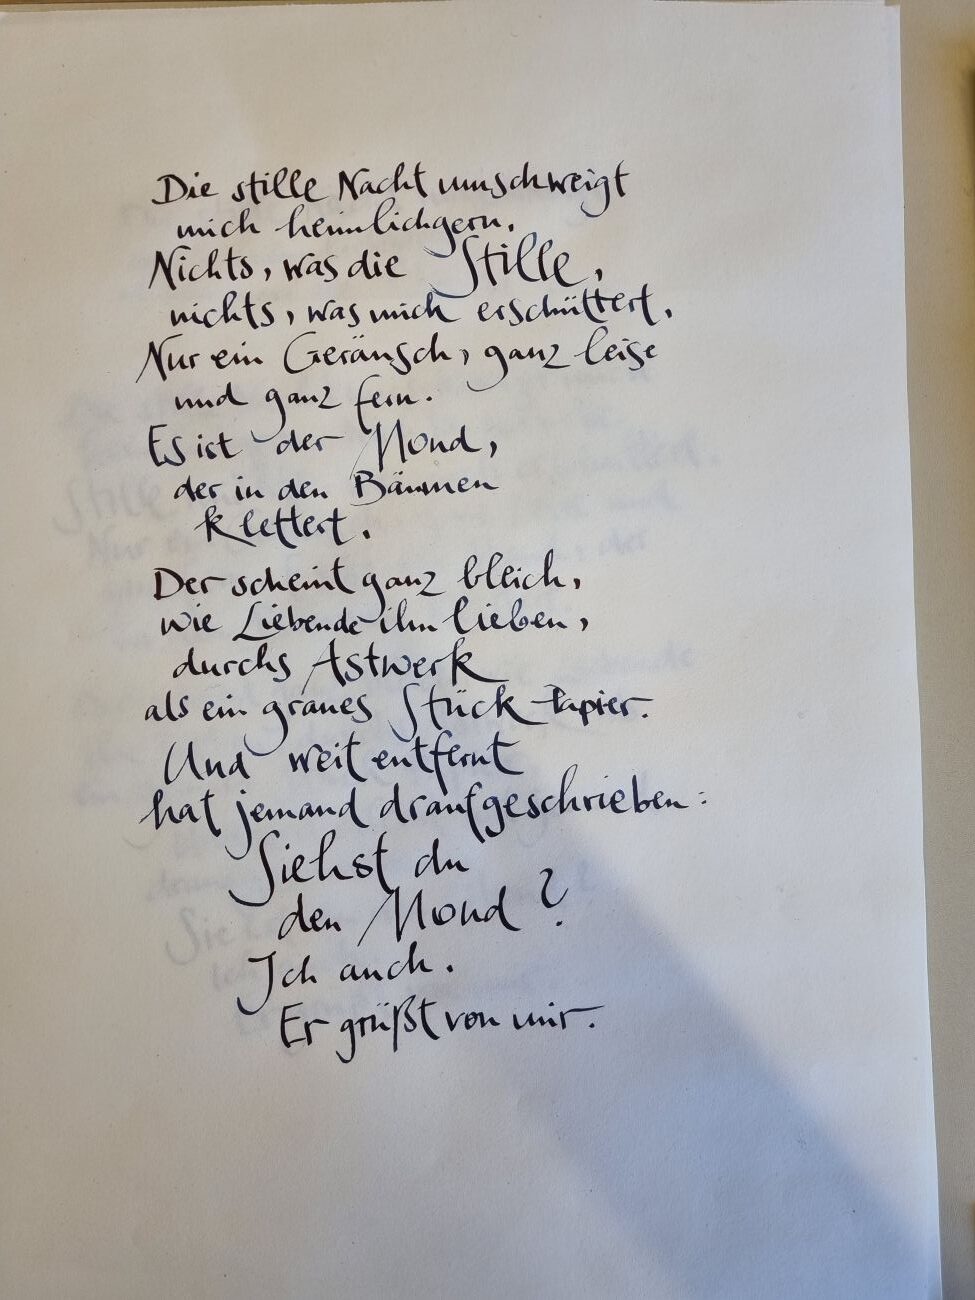 Die stille Nacht umschweigt
mich heimlichgern.
Nichts, was die Stille,
nichts, was mich erschüttert.
Nur ein Geräusch, ganz leise
und ganz fern.
Es ist der Mond,
der in den Bäumen
klettert.
Der scheint ganz bleich,
wie Liebende ihn lieben,
durchs Astwerk
als ein graues Stück Papier.
Und weit entfernt
hat jemand draufgeschrieben:
Siehst du
den Mond?
Ich auch.
Er grüßt von mir.